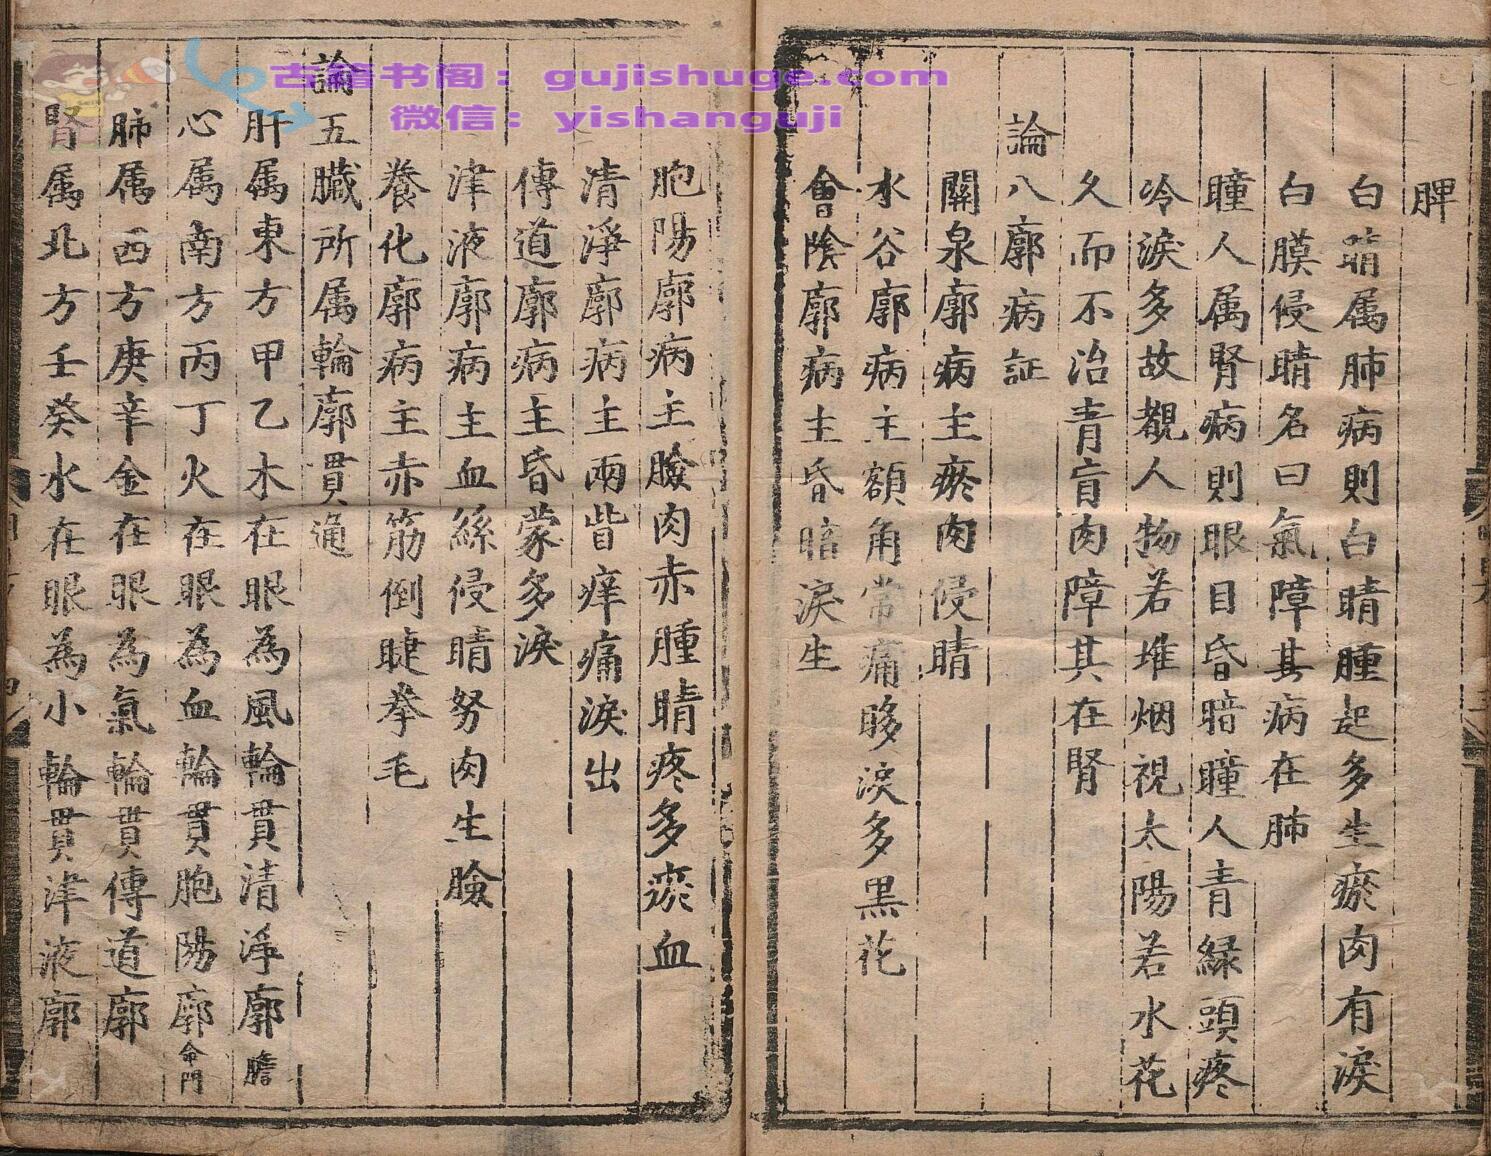 脾
白睛属肺病則白睛腫起多生瘀肉有淚
白膜侵睛名曰氣障其病在肺
瞳人属腎病則眼目昏暗瞳人青緑頭疼
冷淚多故覩人物若堆烟視太陽若水花
久而不治青盲肉障其在腎
論八廓病証
關泉廓病主瘀肉侵睛
水谷廓病主額角常痛眵淚多黒花
會陰廓病主昏暗淚生
胞陽廓病主臉肉赤腫睛疼多瘀血
清淨廓病主兩眥痒痛淚出
傳道廓病主昏蒙多淚
津液廓病主血絲侵睛努肉生臉
養化廓病主赤筋倒睫拳毛
論五臓所属輪廓貫通
肝属東方甲乙木在眼為風輪貫清淨廓膽
心属南方丙丁火在眼為血輪貫胞陽廓命門
肺属西方庚辛金在眼為氣輪貫傳道廓
腎属北方壬癸水在眼為小輪貫津液廓
古籍书阁：gujishuge.com
微信：yishanguji